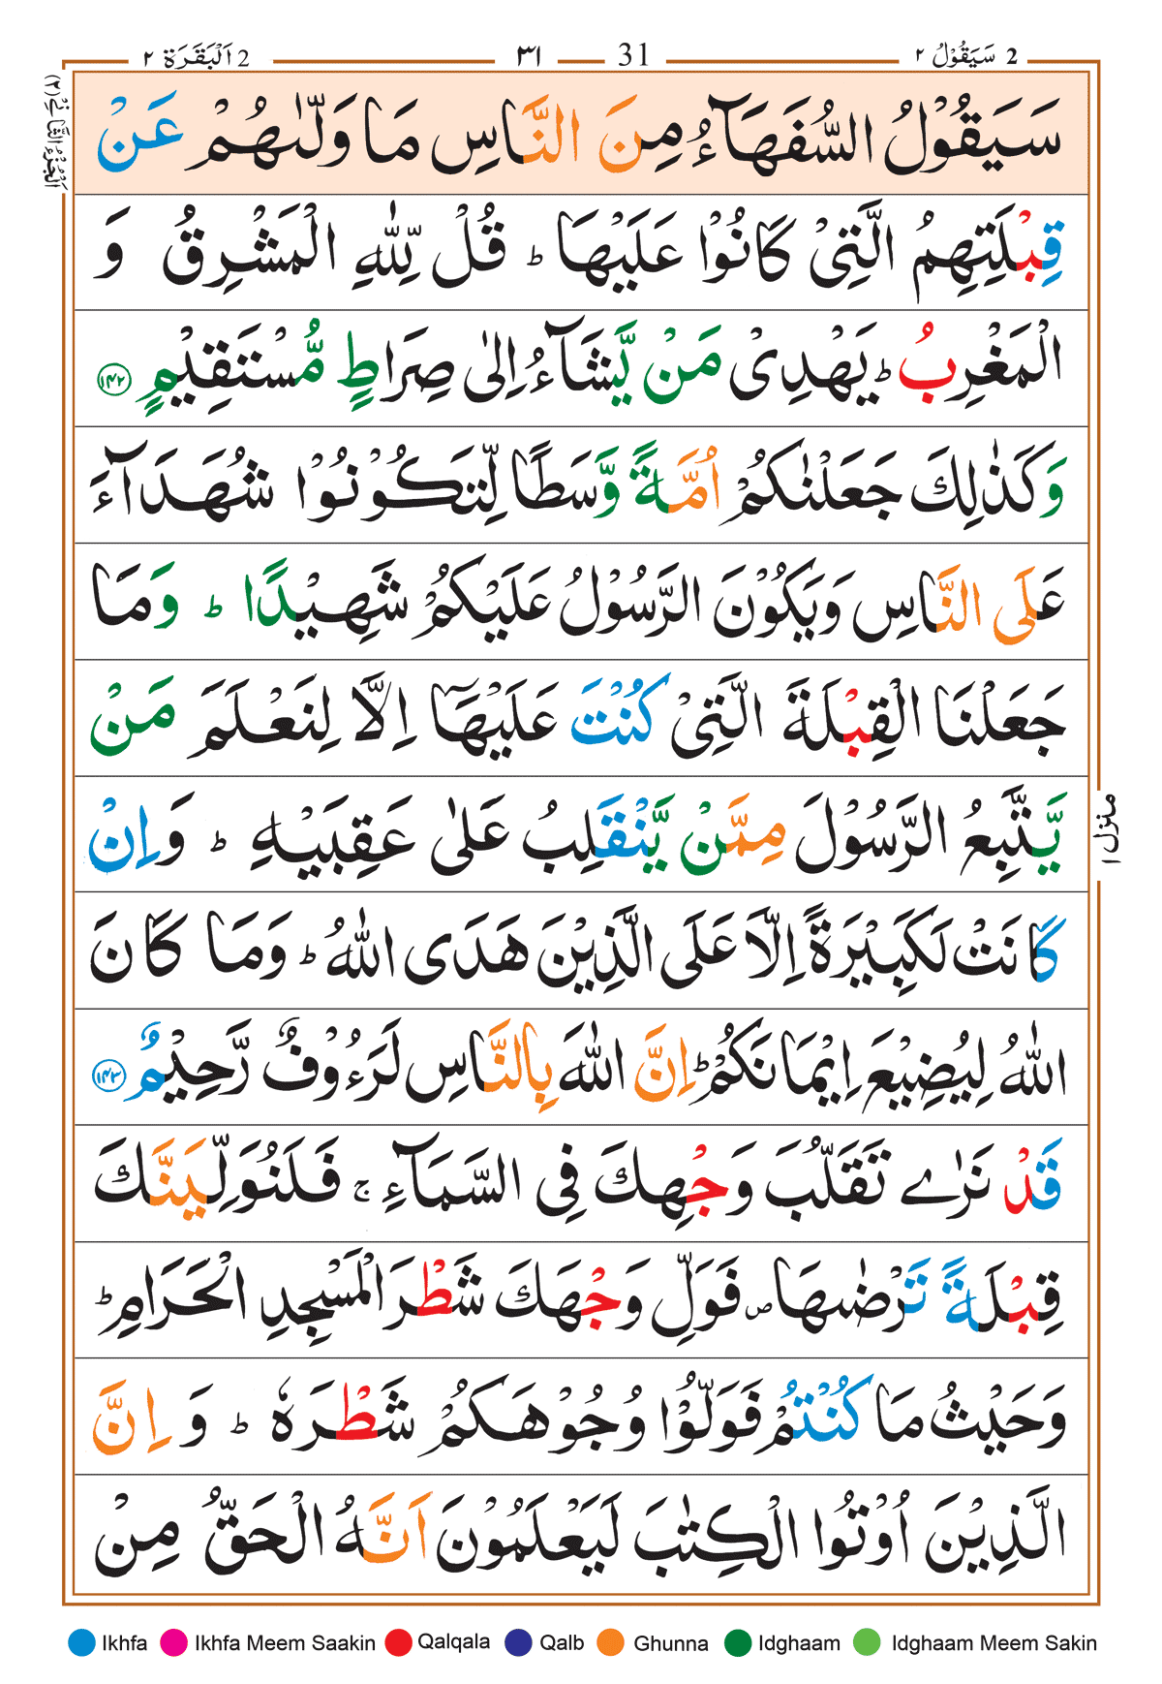 2 سَيَقُوْلُ ٢ 31 ٣١ 2 اَلْبَقَرَة ٢
اَلْجُزْءُ الثَّانِیْ (٢)
سَيَقُوْلُ السُّفَهَآءُ مِنَ النَّاسِ مَا وَلّٰىهُمْ عَنْ
قِبْلَتِهِمُ الَّتِىْ كَانُوْا عَلَيْهَا ؕ قُلْ لِّلّٰهِ الْمَشْرِقُ وَ
الْمَغْرِبُ ؕ يَهْدِىْ مَنْ يَّشَآءُ اِلٰى صِرَاطٍ مُّسْتَقِيْمٍ ١٤٢
وَكَذٰلِكَ جَعَلْنٰكُمْ اُمَّةً وَّسَطًا لِّتَكُوْنُوْا شُهَدَآءَ
عَلَى النَّاسِ وَيَكُوْنَ الرَّسُوْلُ عَلَيْكُمْ شَهِيْدًا ؕ وَمَا
جَعَلْنَا الْقِبْلَةَ الَّتِىْ كُنْتَ عَلَيْهَآ اِلَّا لِنَعْلَمَ مَنْ
يَّتَّبِعُ الرَّسُوْلَ مِمَّنْ يَّنْقَلِبُ عَلٰى عَقِبَيْهِ ؕ وَاِنْ
كَانَتْ لَكَبِيْرَةً اِلَّا عَلَى الَّذِيْنَ هَدَى اللّٰهُ ؕ وَمَا كَانَ
اللّٰهُ لِيُضِيْعَ اِيْمَانَكُمْ ؕ اِنَّ اللّٰهَ بِالنَّاسِ لَرَءُوْفٌ رَّحِيْمٌ ١٤٣
قَدْ نَرٰى تَقَلُّبَ وَجْهِكَ فِى السَّمَآءِ ۚ فَلَنُوَلِّيَنَّكَ
قِبْلَةً تَرْضٰىهَا ۖ فَوَلِّ وَجْهَكَ شَطْرَ الْمَسْجِدِ الْحَرَامِ ؕ
وَحَيْثُ مَا كُنْتُمْ فَوَلُّوْا وُجُوْهَكُمْ شَطْرَهٗ ؕ وَ اِنَّ
الَّذِيْنَ اُوْتُوا الْكِتٰبَ لَيَعْلَمُوْنَ اَنَّهُ الْحَقُّ مِنْ
منزل ١
Ikhfa Ikhfa Meem Saakin Qalqala Qalb Ghunna Idghaam Idghaam Meem Sakin